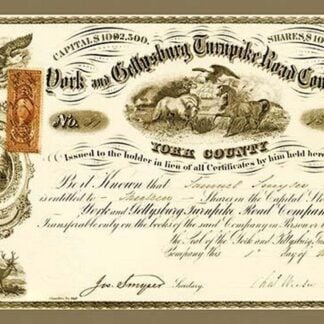 CAPITAL $ 1002,500. SHARES, $ 10
York and Gettysburg Turnpike Road Com
No.
YORK COUNTY
Issued to the holder in lieu of all Certificates by him held here
Be it Known that Samuel Smyser
is entitled to Share in the Capital St
York and Gettysburg Turnpike Road Compan
Transferable only on the books of the said Company in Person or
The Seal of the York and Gettysburg Tur
Company this 1st day of
Jos. Smyser Secretary. Chas